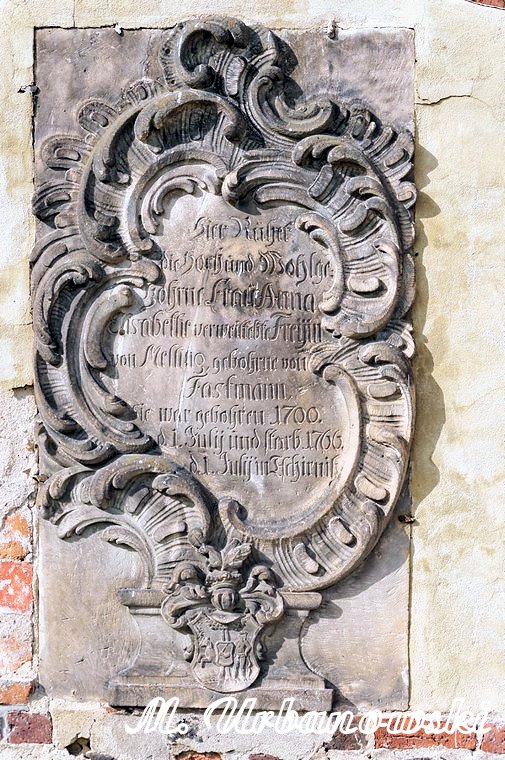 Hier Ruhet
die Hoch und Wohlge-
bohrne Frau Anna
verwettebte Freyin
von gebohrne von
Fastmann.
Sie war gebohren 1700.
d. 1. Julij und starb. 1766.
d. 1. Julij in Tschirnitz
M. Urbanowski